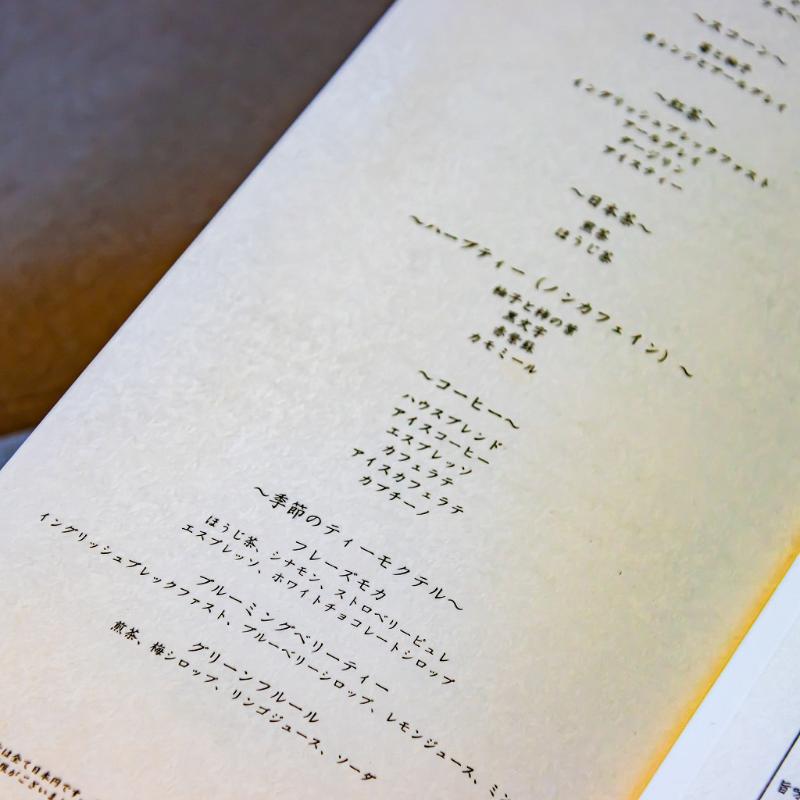 ~スコーン~
~紅茶~
イングリッシュブレックファスト
アールグレイ
ダージリン
アイスティー
~日本茶~
煎茶
ほうじ茶
~ハーブティー(ノンカフェイン)~
柚子と柿の葉
黒文字
赤紫蘇
カモミール
~コーヒー~
ハウスブレンド
アイスコーヒー
エスプレッソ
カフェラテ
アイスカフェラテ
カプチーノ
~季節のティーモクテル~
フレーズモカ
ほうじ茶、シナモン、ストロベリーピュレ
エスプレッソ、ホワイトチョコレートシロップ
ブルーミングベリーティー
イングリッシュブレックファスト、ブルーベリーシロップ、レモンジュース、ミン
グリーンフルール
煎茶、梅シロップ、リンゴジュース、ソーダ
は全て日本円です。